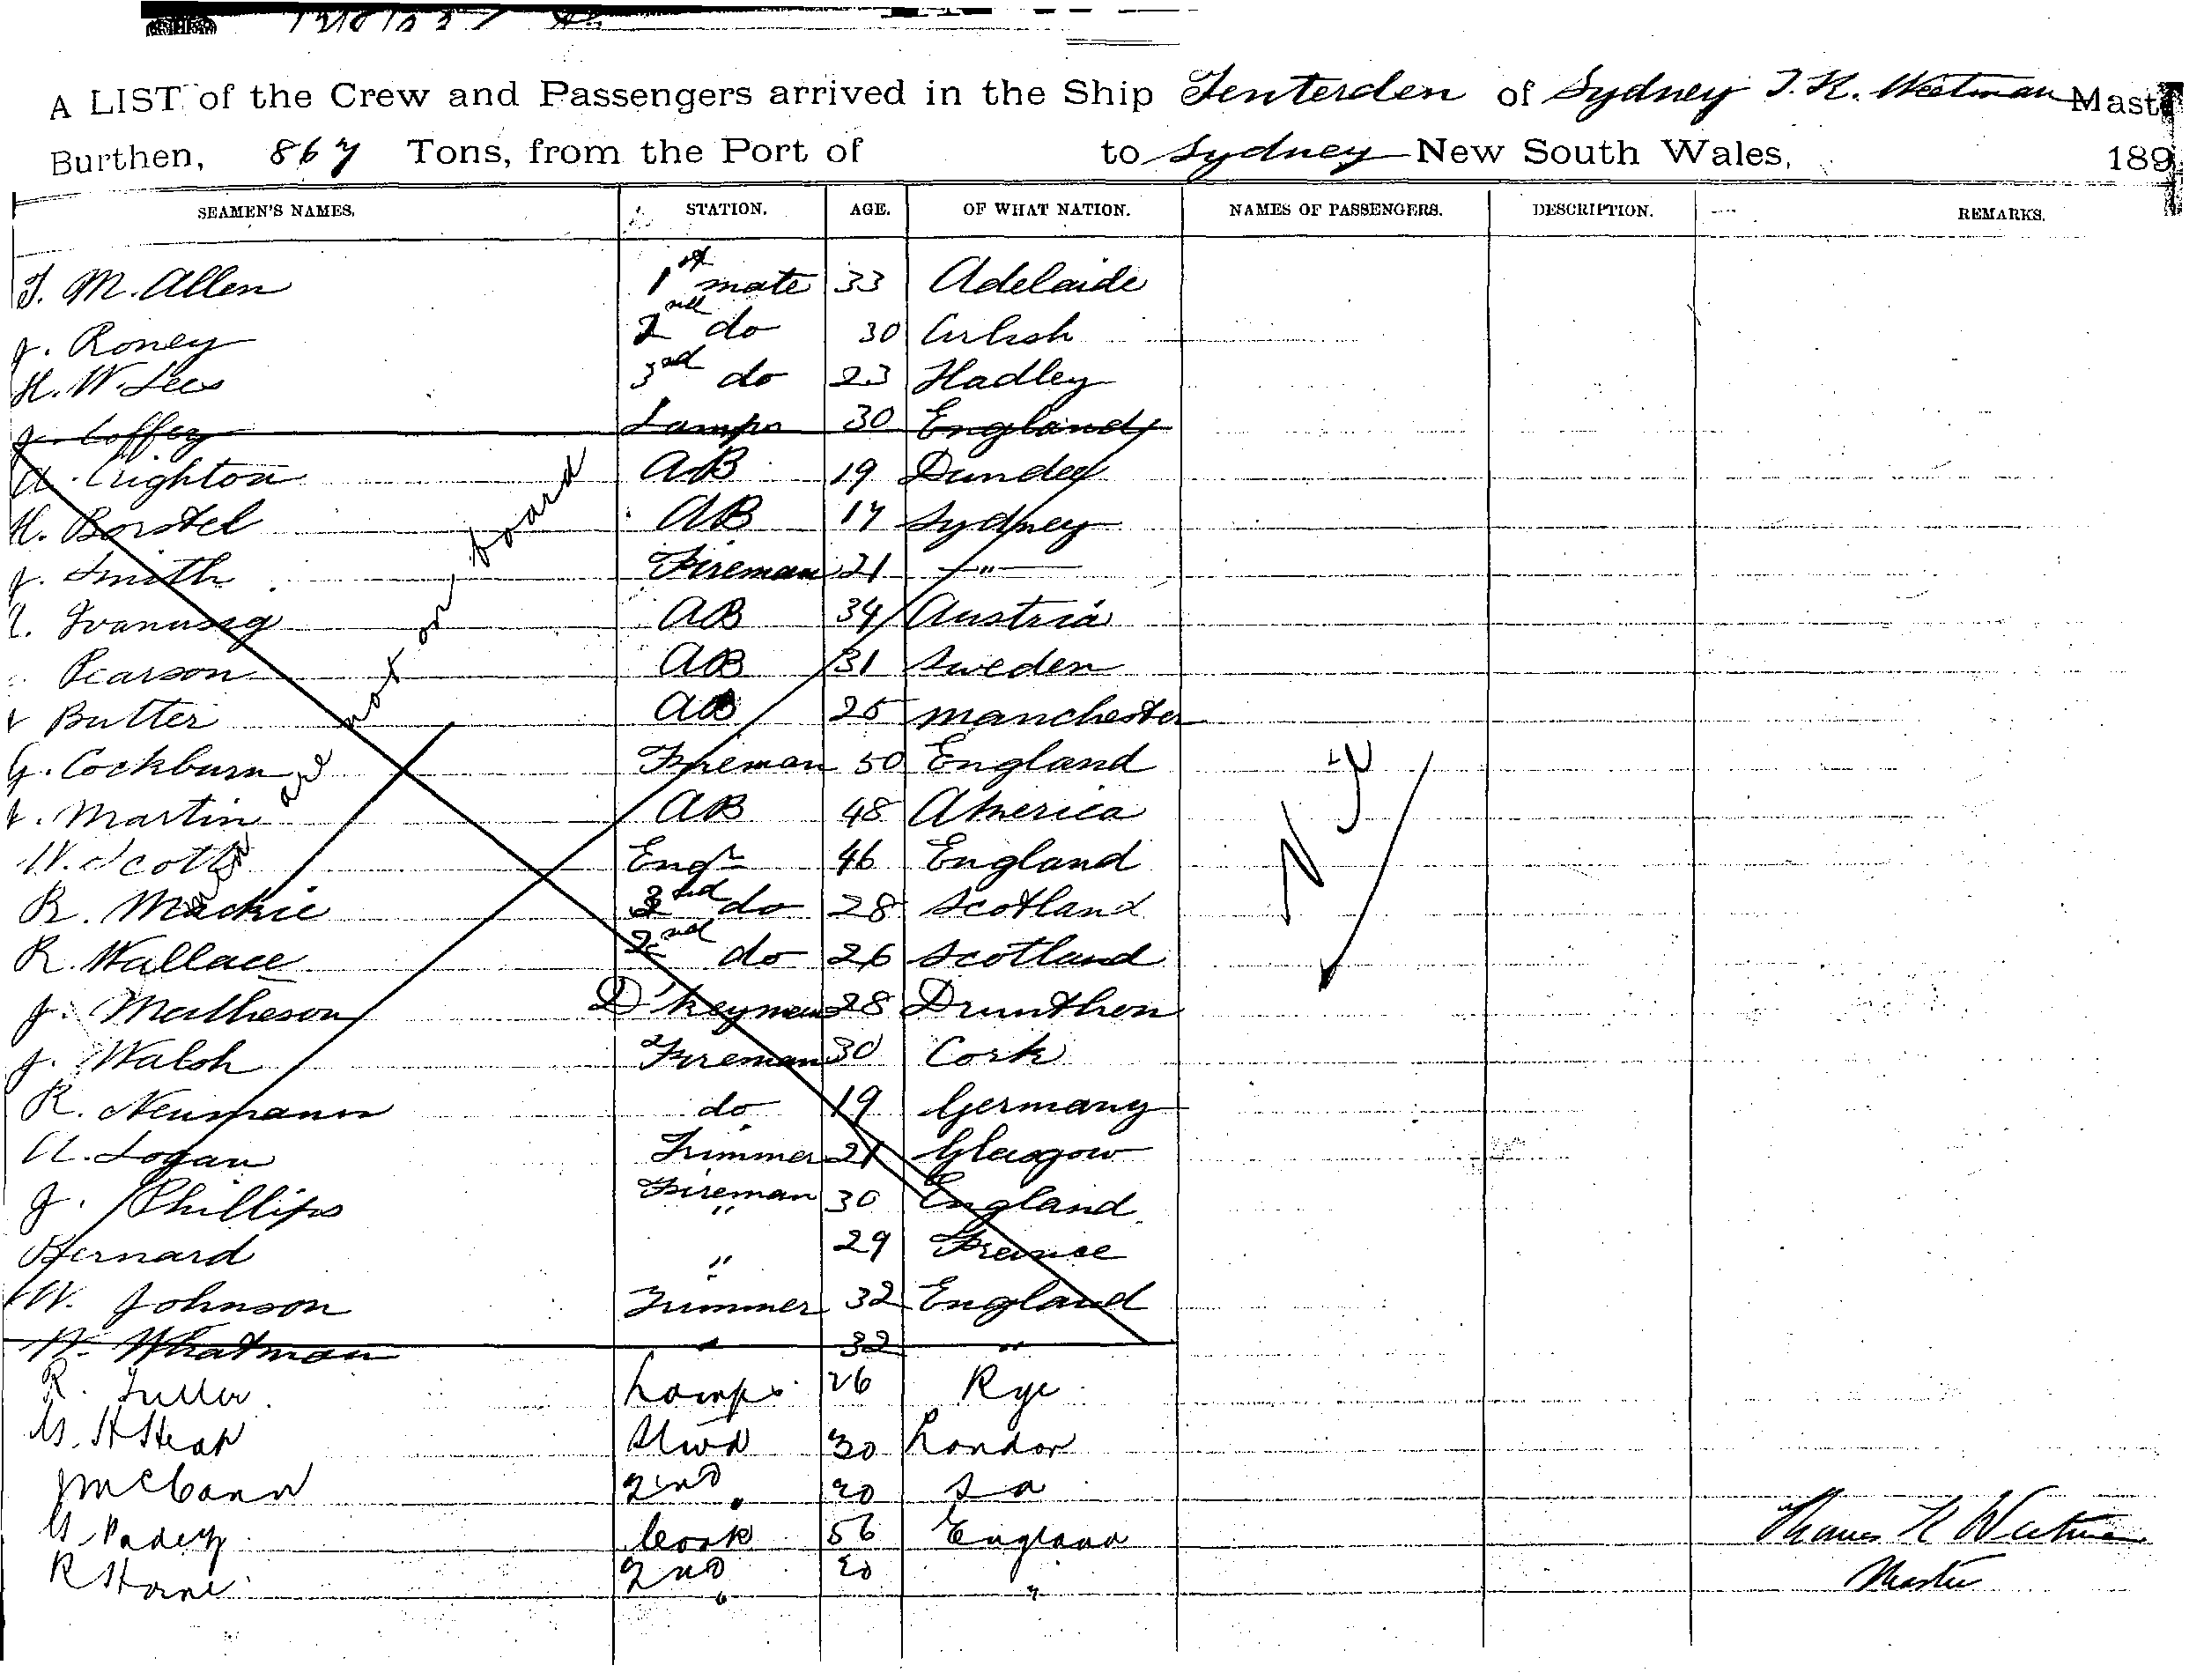 A LIST of the Crew and Passengers arrived in the Ship Tenterden of Sydney T. R. Weatman Mast
Burthen, 867 Tons, from the Port of to Sydney New South Wales, 189
SEAMEN'S NAMES. STATION. AGE. OF WHAT NATION. NAMES OF PASSENGERS. DESCRIPTION. REMARKS.
T. M. Allen 1st mate 33 Adelaide
J. Roney 2nd do 30 Irish
H. W. Lees 3rd do 23 Hadley
J. Coffey Lamps 30 England
A. Crighton AB 19 Dundee
H. Borstel AB 17 Sydney
J. Smith Fireman 21 "
Ivanussg AB 34 Austria
Pearson AB 31 Sweden
Butter AB 25 Manchester
G. Cockburn Fireman 50 England
Martin AB 48 America
W. Scott Engr 46 England
R. Mackie 2nd do 28 Scotland
R. Wallace 2nd do 26 Scotland
J. Matheson D'keyman 28 Drunthon
J. Walsh Fireman 30 Cork
R. Neumann do 19 Germany
A. Logan Trimmer 21 Glasgow
J. Phillips Fireman 30 England
Bernard " 29 France
W. Johnson Trimmer 32 England
W. Whatman " 32 "
R. Fuller Lamps 26 Rye
G. H Heap Stwd 30 London
J McCann 2nd " 20 Sa
Cook 56 England
R Horne 2nd " 20 "
not on board
are
Master